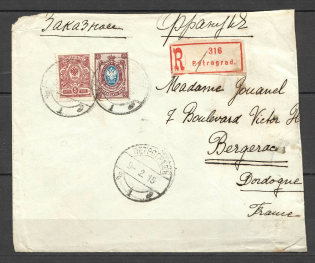 Заказное Францiя
R 316
Petrograd.
Madame Jouanel
7 Boulevard Victor H
Bergerac
Dordogne
France
2.15